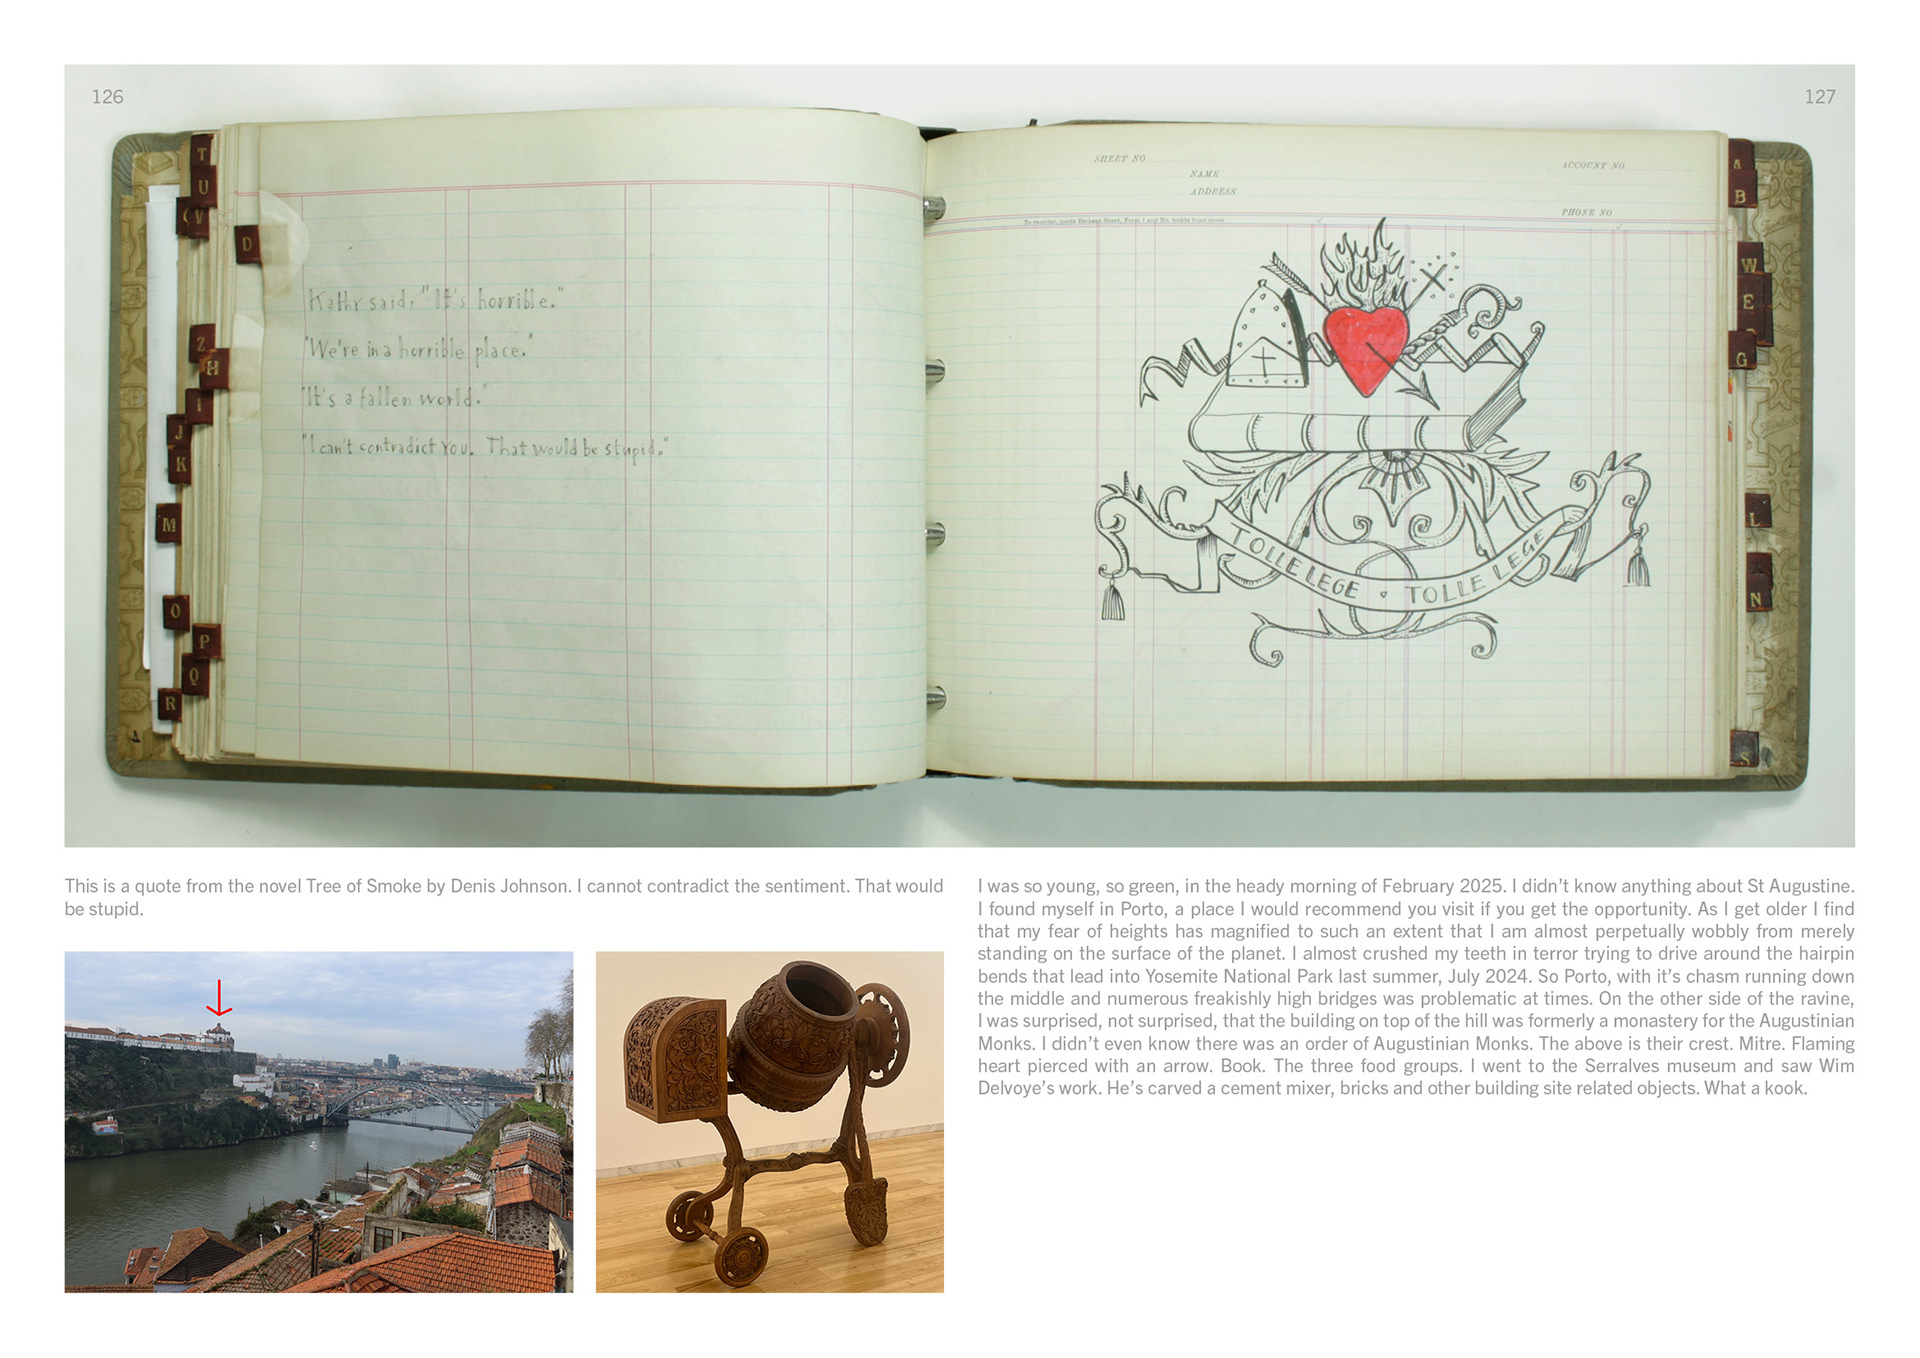 126
127
T
U
V
D
Z
H
I
J
K
M
O
P
Q
R
Kathy said, "It's horrible."
"We're in a horrible place."
"It's a fallen world."
"I can't contradict you. That would be stupid."
SHEET NO
ACCOUNT NO
NAME
ADDRESS
PHONE NO
To reorder, quote
TOLLE LEGE · TOLLE LEGE
A
B
W
E
G
L
N
S
This is a quote from the novel Tree of Smoke by Denis Johnson. I cannot contradict the sentiment. That would
be stupid.
I was so young, so green, in the heady morning of February 2025. I didn't know anything about St Augustine.
I found myself in Porto, a place I would recommend you visit if you get the opportunity. As I get older I find
that my fear of heights has magnified to such an extent that I am almost perpetually wobbly from merely
standing on the surface of the planet. I almost crushed my teeth in terror trying to drive around the hairpin
bends that lead into Yosemite National Park last summer, July 2024. So Porto, with it's chasm running down
the middle and numerous freakishly high bridges was problematic at times. On the other side of the ravine,
I was surprised, not surprised, that the building on top of the hill was formerly a monastery for the Augustinian
Monks. I didn't even know there was an order of Augustinian Monks. The above is their crest. Mitre. Flaming
heart pierced with an arrow. Book. The three food groups. I went to the Serralves museum and saw Wim
Delvoye's work. He's carved a cement mixer, bricks and other building site related objects. What a kook.